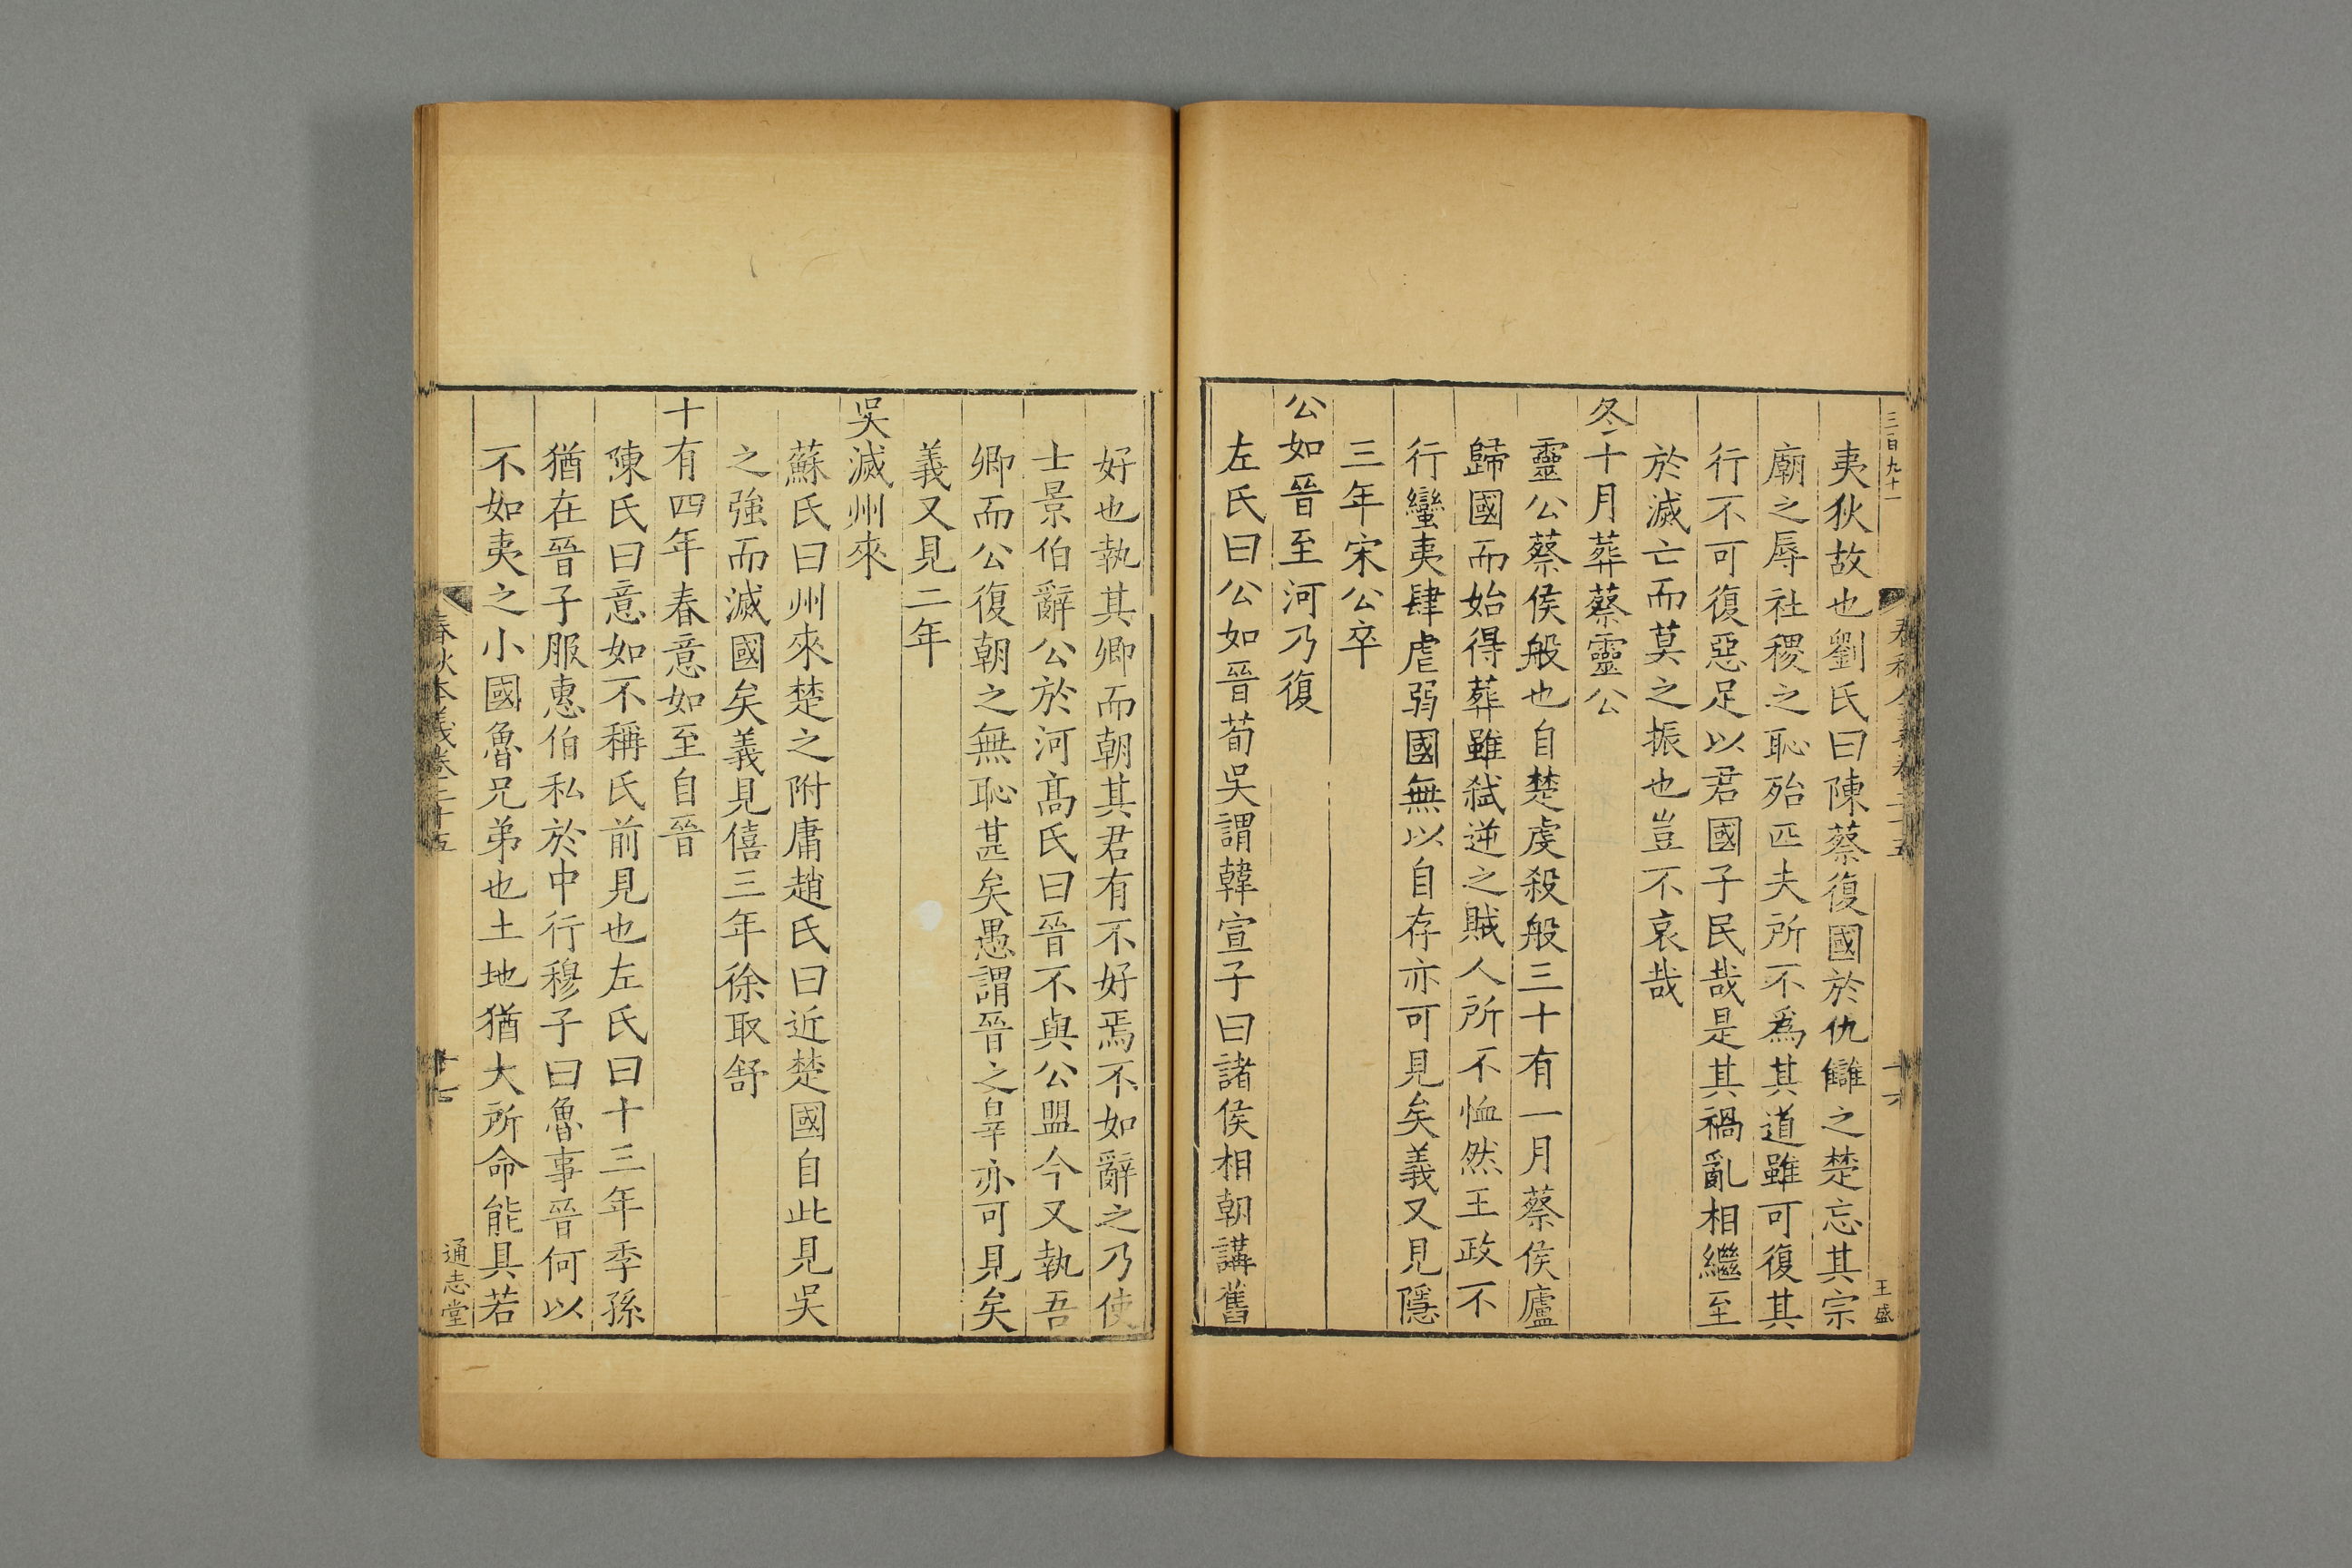 三百九十一
王盛
夷狄故也劉氏曰陳蔡復國於仇讎之楚忘其宗
廟之辱社稷之恥殆匹夫所不為其道雖可復其
行不可復惡足以君國子民哉是其禍亂相繼至
於滅亡而莫之振也豈不哀哉
冬十月葬蔡靈公
靈公蔡侯般也自楚虔殺般三十有一月蔡侯廬
歸國而始得葬雖弑逆之賊人所不恤然王政不
行蠻夷肆虐弱國無以自存亦可見矣義又見隱
三年宋公卒
公如晉至河乃復
左氏曰公如晉荀吳謂韓宣子曰諸侯相朝講舊
好也執其卿而朝其君有不好焉不如辭之乃使
士景伯辭公於河髙氏曰晉不與公盟今又執吾
卿而公復朝之無恥甚矣愚謂晉之辠亦可見矣
義又見二年
吳滅州來
蘇氏曰州來楚之附庸趙氏曰近楚國自此見吳
之強而滅國矣義見僖三年徐取舒
十有四年春意如至自晉
陳氏曰意如不稱氏前見也左氏曰十三年季孫
猶在晉子服惠伯私於中行穆子曰魯事晉何以
不如夷之小國魯兄弟也土地猶大所命能具若
春秋本義卷二十五
十七
通志堂